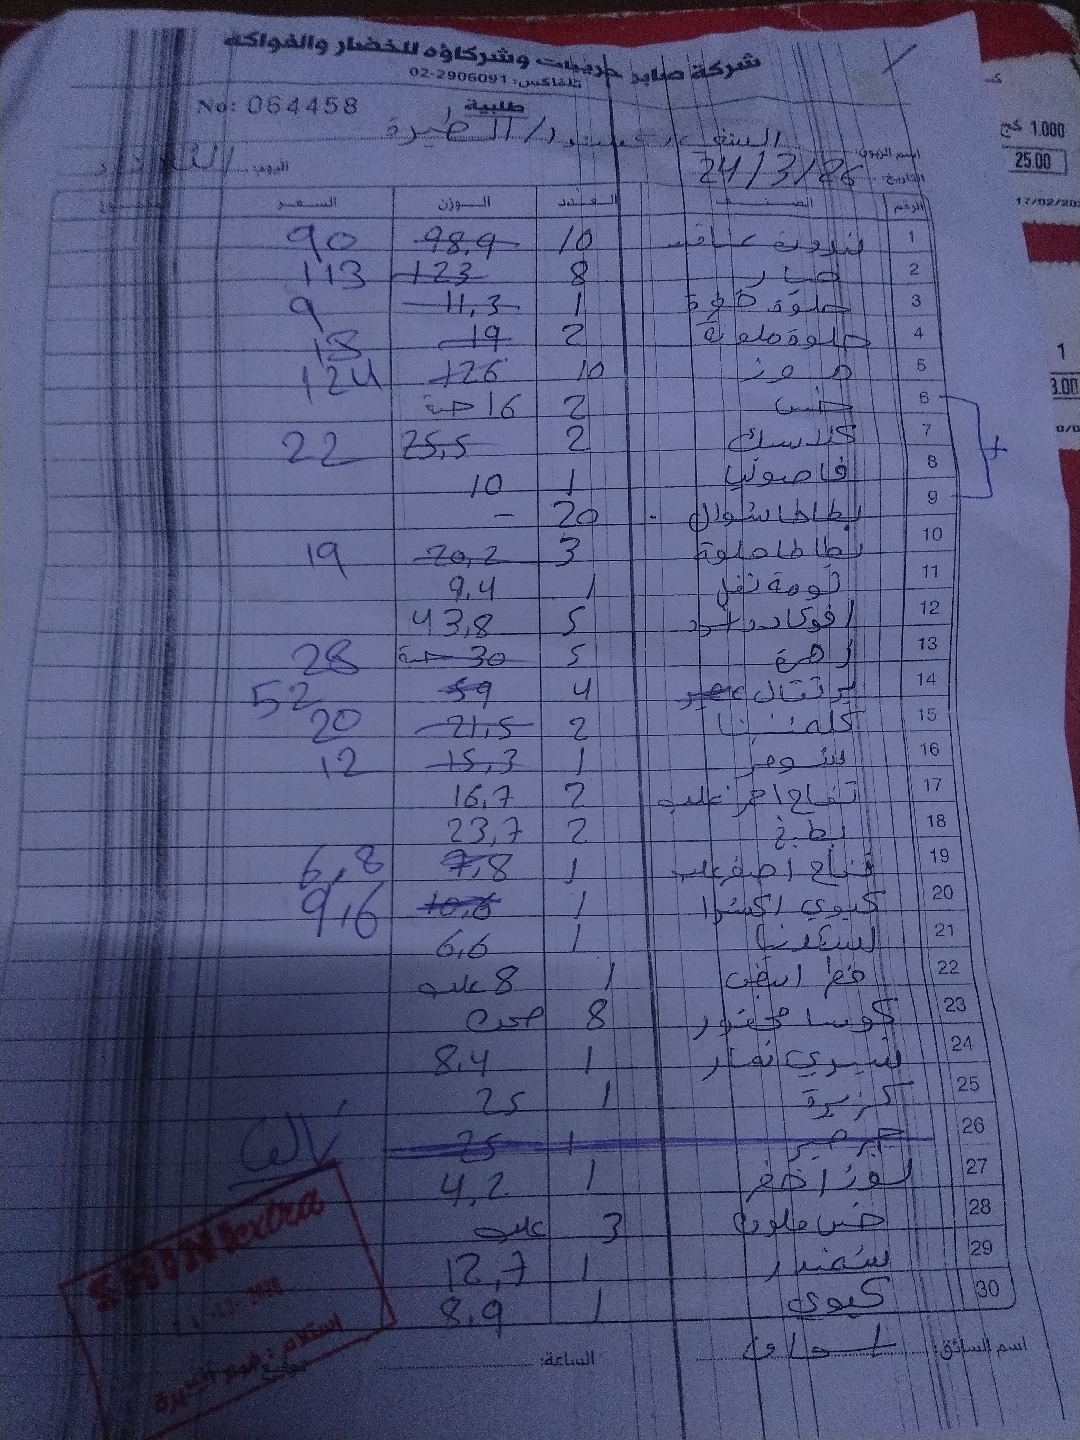 شركة صابر حريبات وشركاؤه للخضار والفواكه
تلفاكس: 02-2906091
No: 064458
طلبية
اسم الزبون: الطيرة
اليوم: التاريخ: 24/3/26
الرقم الصنف العدد الوزن السعر
1 10 98,9 90
2 خيار 8 123 113
3 حلوة 1 11,3 9
4 حلوة ملونة 2 19 18
5 موز 10 126 124
6 خس 2 16 حبة
7 2 25,5 22
8 فاصوليا 1 10
9 بطاطا شوال 20 -
10 بطاطا حلوة 3 20,2 19
11 ثومة 1 9,4
12 افوكادو 5 43,8
13 زهرة 5 30 حبة 28
14 برتقال 4 59 52
15 كلمنتينا 2 21,5 20
16 شومر 1 15,3 12
17 تفاح احمر علب 2 16,7
18 بطيخ 2 23,7
19 تفاح اصفر علب 1 7,8 6,8
20 كيوي اكسترا 1 10,6 9,6
21 اسكدنيا 1 6,6
22 ابيض 1 8 علب
23 كوسا 8
24 شيري 1 8,4
25 كزبرة 1 25
26 جرجير 1 25
27 لوز اخضر 1 4,2
28 خس 3 علب
29 شمندر 1 12,7
30 كيوي 1 8,9
اسم السائق: الساعة:
extra
استلام
1.000 كج
25.00
17/02/20
1
3.00